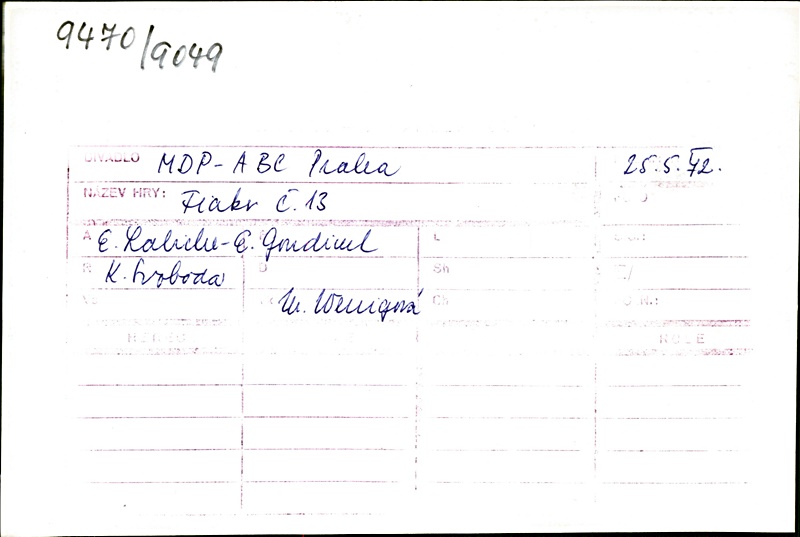 9470/9049
DIVADLO MDP-ABC Praha 25.5.72.
NÁZEV HRY: Fiakr č. 13
A E. Labiche - E. Gondinet L
R K. Svoboda D Sh
M. Wenigová Ch
ROLE